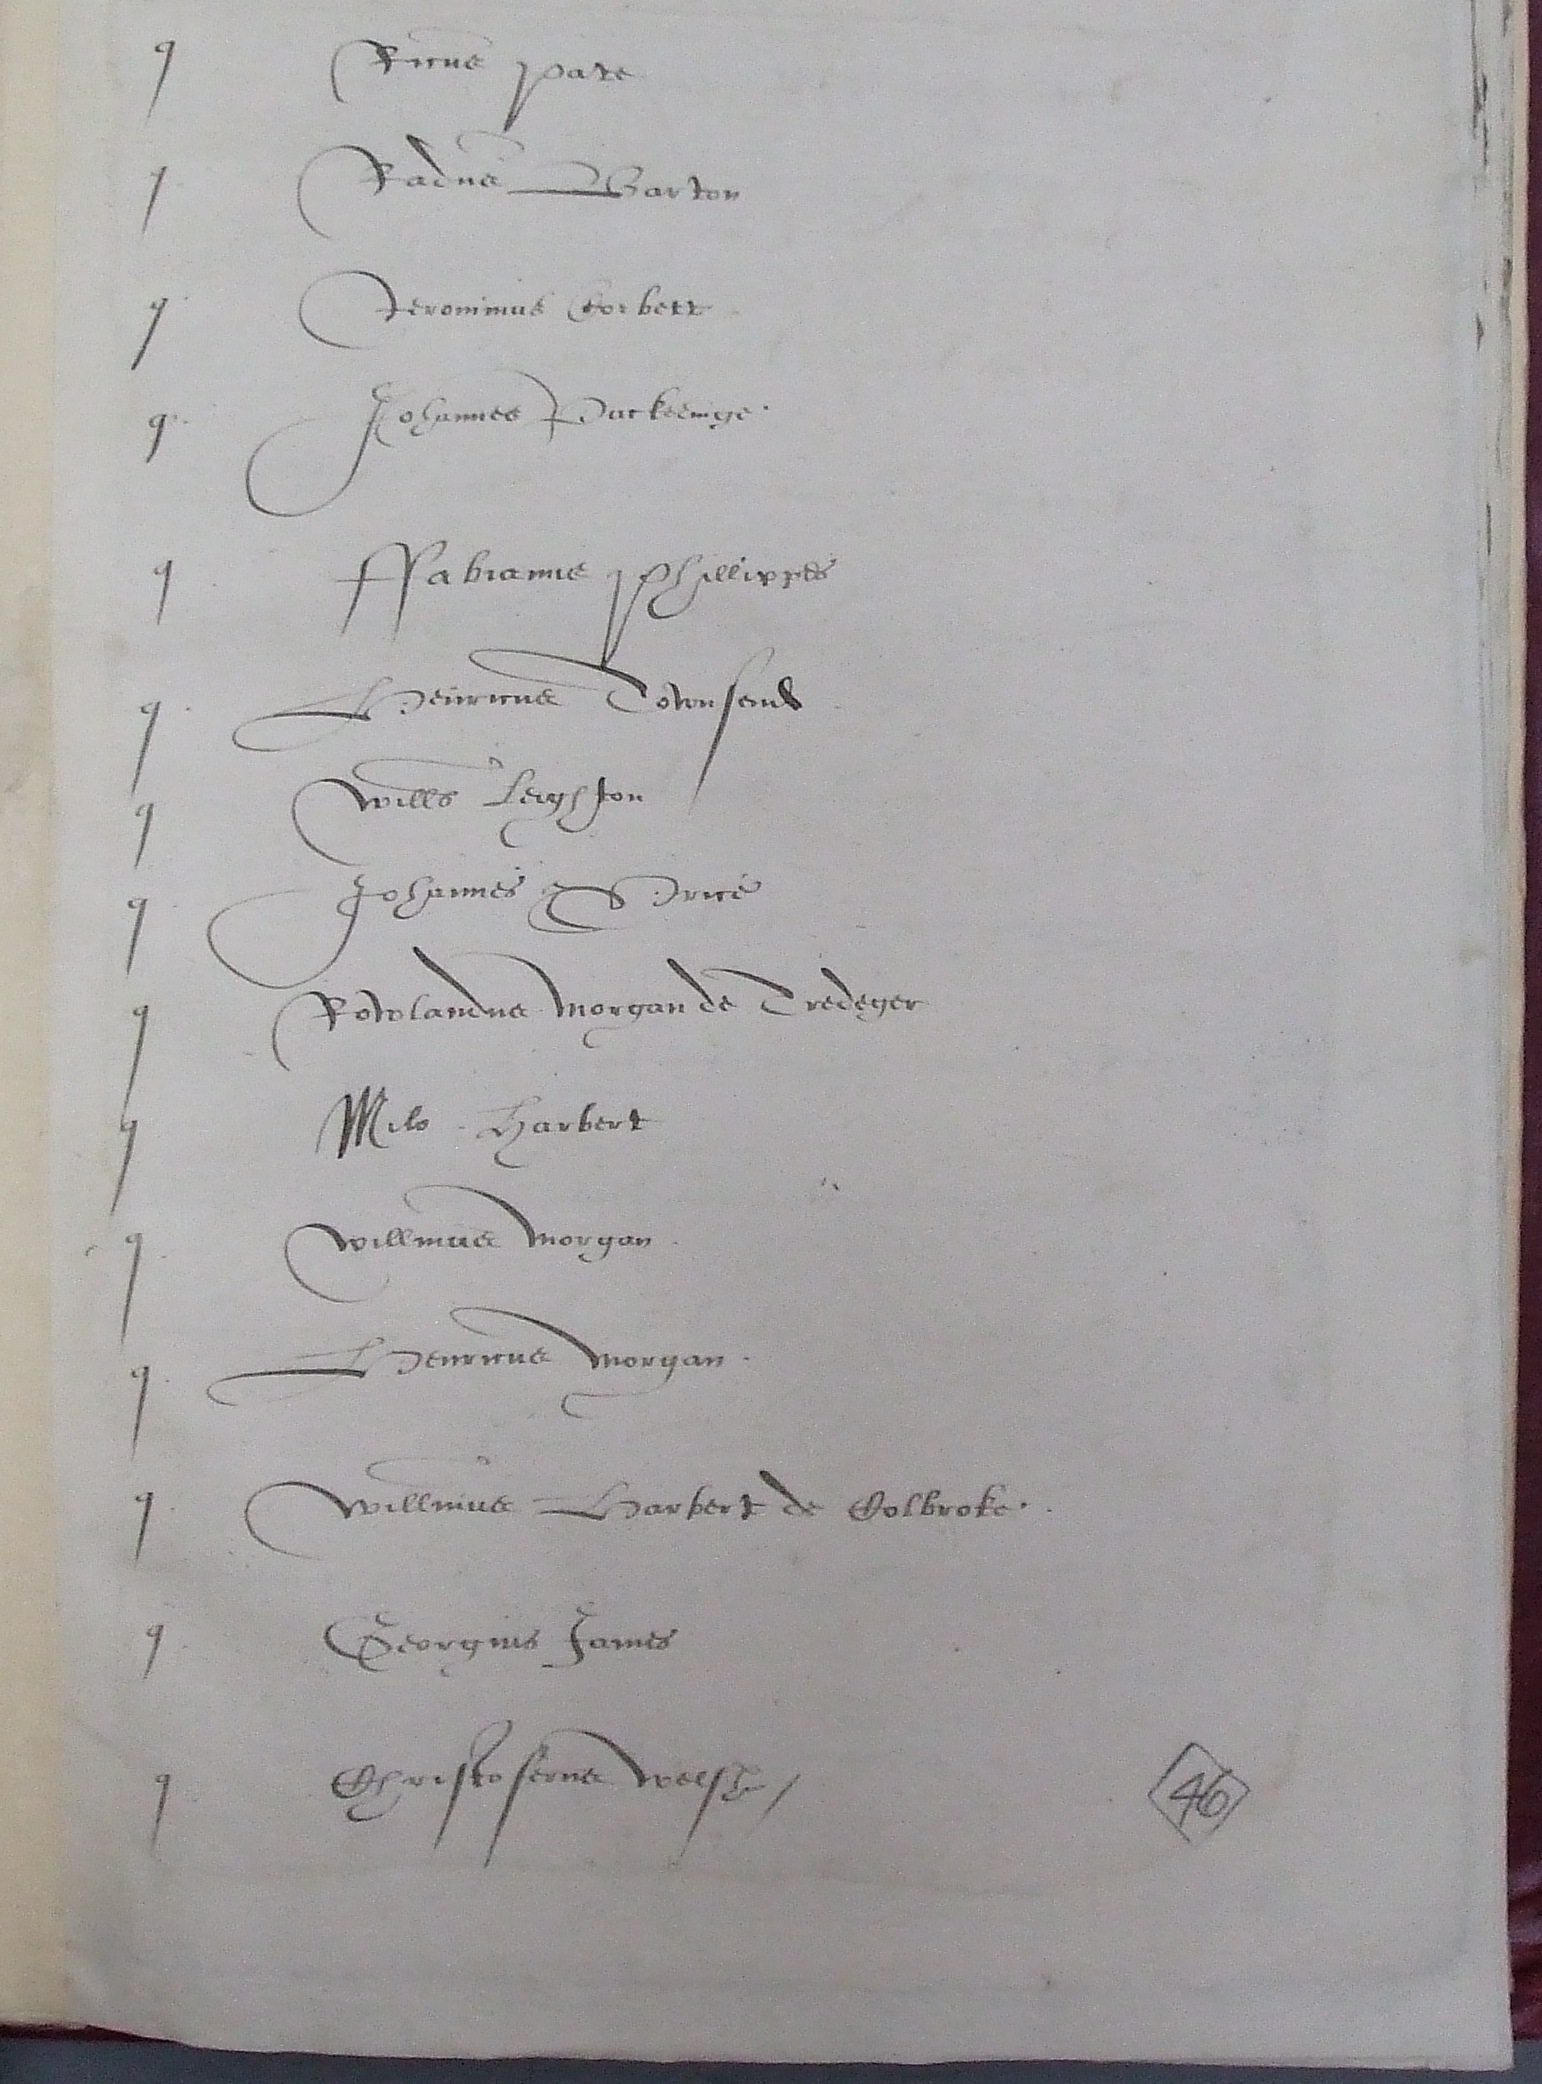 q Ricus Pate
q Radus Barton
q Jeronimus Corbett
q Johannes Puckeringe
q ffabianus Phillippes
q Henricus Townsend
q Willus Leighton
q Johannes Price
q Rowlandus Morgan de Tredeger
q Milo Harbert
q Willmus Morgan
q Henricus Morgan
q Willmus Harbert de Colbroke
q Georgius James
q Christoferus Welsh
46